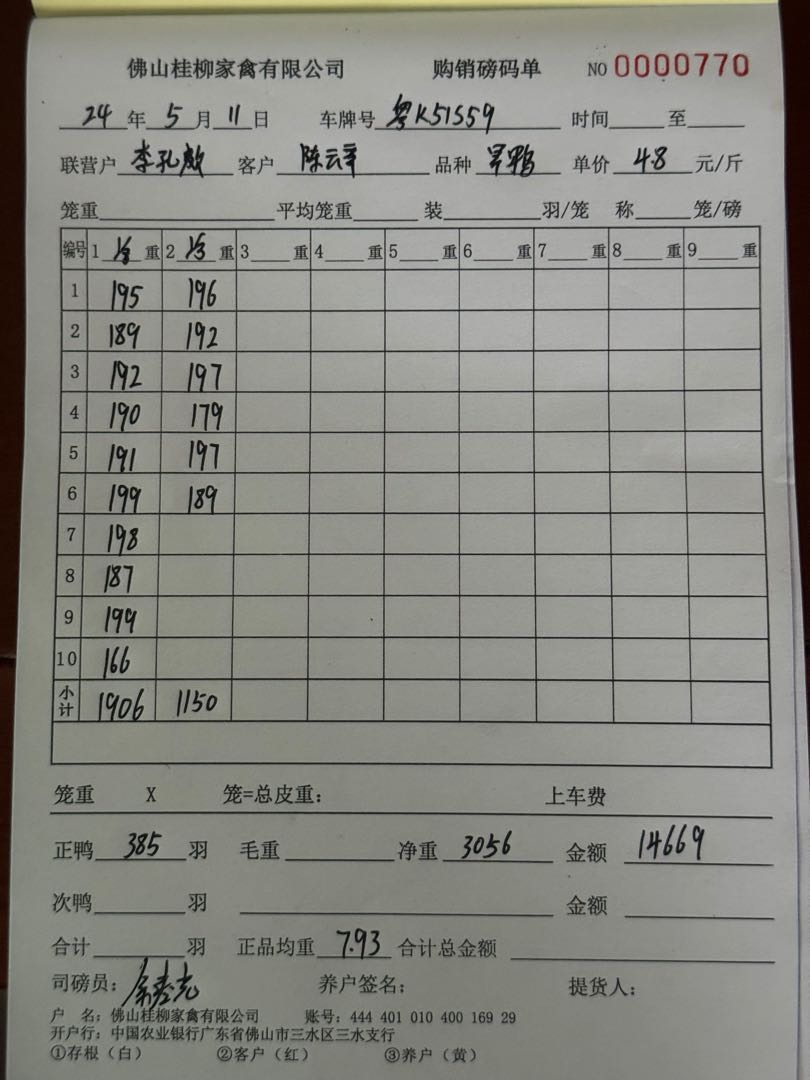 佛山桂柳家禽有限公司 购销磅码单 NO 0000770
24年5月11日 车牌号 粤K51S59 时间 至
联营户 李孔 客户 陈云 品种 单价 4.8 元/斤
笼重 平均笼重 装 羽/笼 称 笼/磅
编号 1 重 2 重 3 重 4 重 5 重 6 重 7 重 8 重 9 重
1 195 196
2 189 192
3 192 197
4 190 179
5 191 197
6 199 189
7 198
8 187
9 199
10 166
小计 1906 1150
笼重 X 笼=总皮重: 上车费
正鸭 385 羽 毛重 净重 3056 金额 14669
次鸭 羽 金额
合计 羽 正品均重 7.93 合计总金额
司磅员: 养户签名: 提货人:
户 名: 佛山桂柳家禽有限公司 账号: 444 401 010 400 169 29
开户行: 中国农业银行广东省佛山市三水区三水支行
①存根(白) ②客户(红) ③养户(黄)